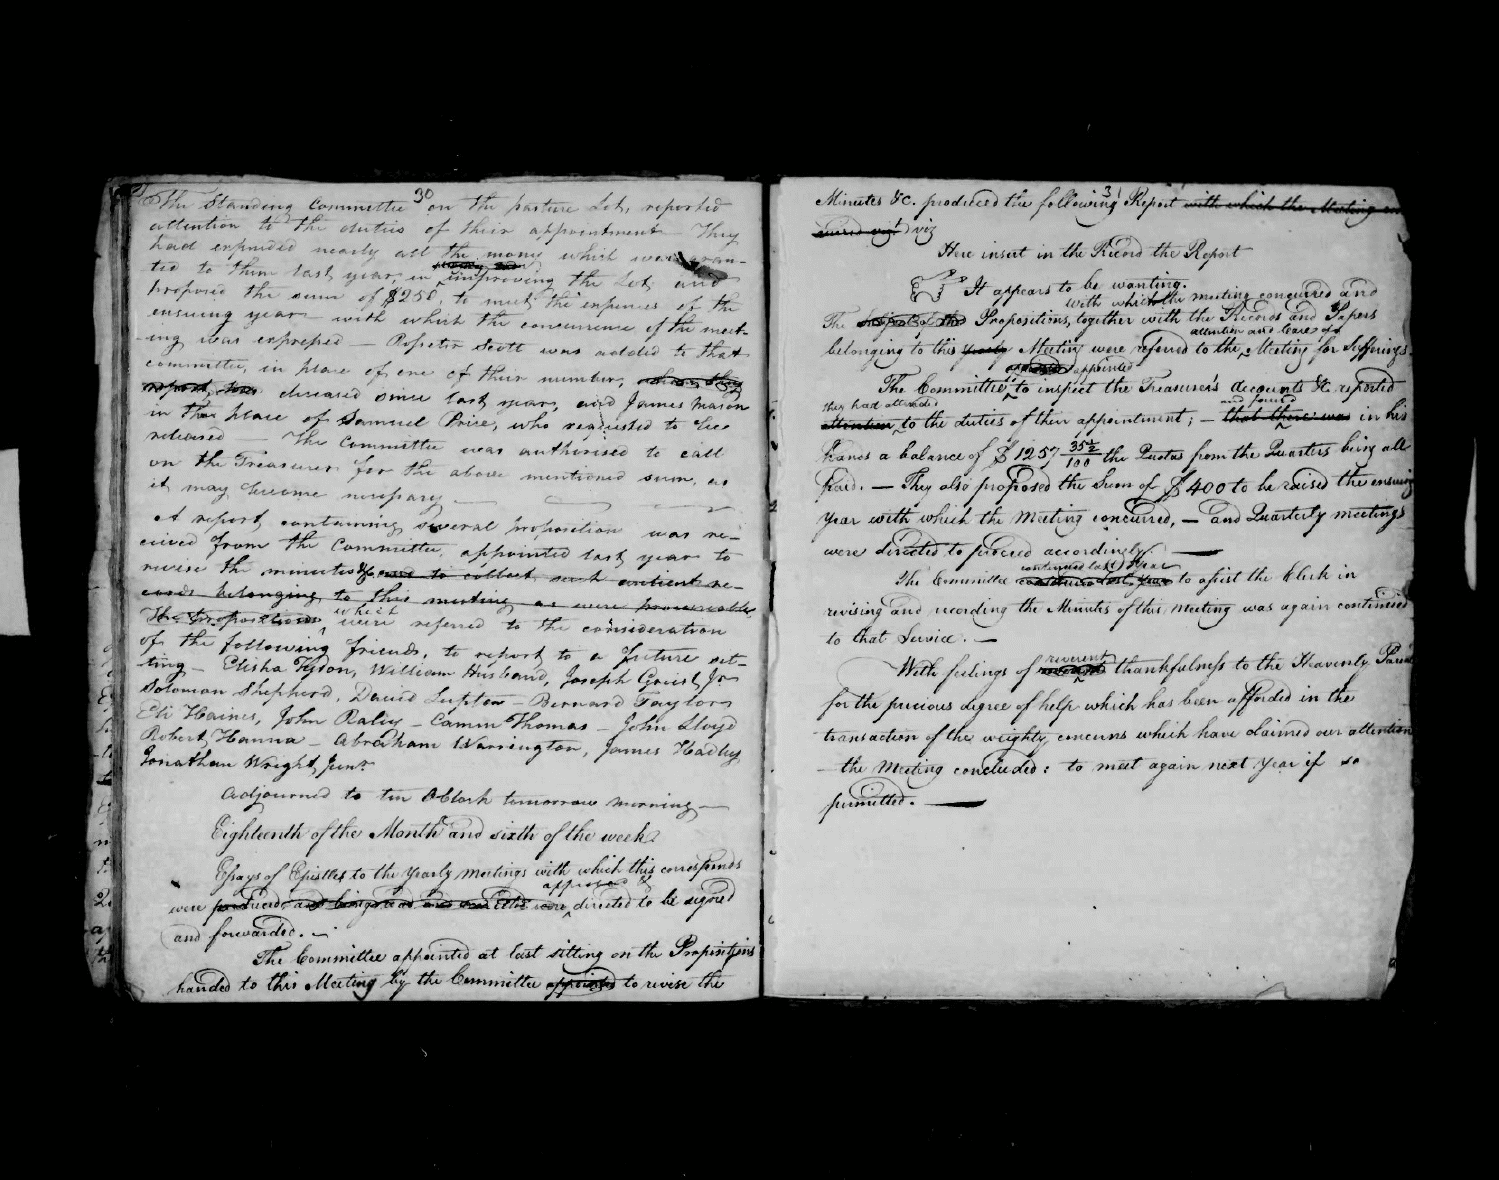 30
The Standing Committee on the pasture Lot, reported
attention to the duties of their appointment They
had expended nearly all the money which was gran-
ted to them last year, in improving the Lot, and
proposed the sum of $250, to meet the expenses of the
ensuing year — with which the concurrence of the meet-
ing was expressed — Ropeter Scott was added to that
committee, in place of one of their number, whom they
report, has deceased since last year, and James Mason
in the place of Samuel Price, who requested to be
released — The Committee was authorised to call
on the Treasurer for the above mentioned sum, as
it may become necessary —
A report containing several proposition was re-
ceived from the Committee, appointed last year to
revise the minutes &c and to collect such antient re-
cords belonging to this meeting as were procurable
The propositions which were referred to the consideration
of the following friends, to report to a future sit-
ting — Elisha Tyson, William Husband, Joseph Grist Jr
Solomon Shepherd, David Lupton — Bernard Taylor
Eli Haines, John Raley — Camm Thomas — John Lloyd
Robert Hanna — Abraham Warrington, James Hadley
Jonathan Wright, Junr
Adjourned to ten OClock tomorrow morning —
Eighteenth of the Month and sixth of the week
Essays of Epistles to the Yearly Meetings with which this corresponds
approved &
were produced and being read and were directed to be signed
and forwarded. —
The Committee appointed at last sitting on the Propositions
handed to this Meeting by the Committee appointed to revise the
31
Minutes &c. produced the following Report with which the Meeting con
curred viz viz
Here insert in the Record the Report
It appears to be wanting.
with which the meeting concurred and
The report of the Propositions, together with the Records and Papers
attention and leave of
belonging to this Yearly Meeting were referred to the Meeting for Sufferings.
appointed
The Committee to inspect the Treasurer's Accounts &c. reported
they had attended and found
attention to the duties of their appointment; — that there was in his
hands a balance of $1257 35½/100 the Quotas from the Quarters being all
paid. — They also proposed the Sum of $400 to be raised the ensuing
year with which the Meeting concurred, — and Quarterly meetings
were directed to proceed accordingly. —
continued last year
The Committee continued last year to assist the Clerk in
revising and recording the Minutes of this Meeting was again continued
to that Service. —
reverent
With feelings of thankfulness to the Heavenly Parent
for the precious degree of help which has been afforded in the
transaction of the weighty concerns which have claimed our attention
— the Meeting concluded: to meet again next Year if so
permitted. —